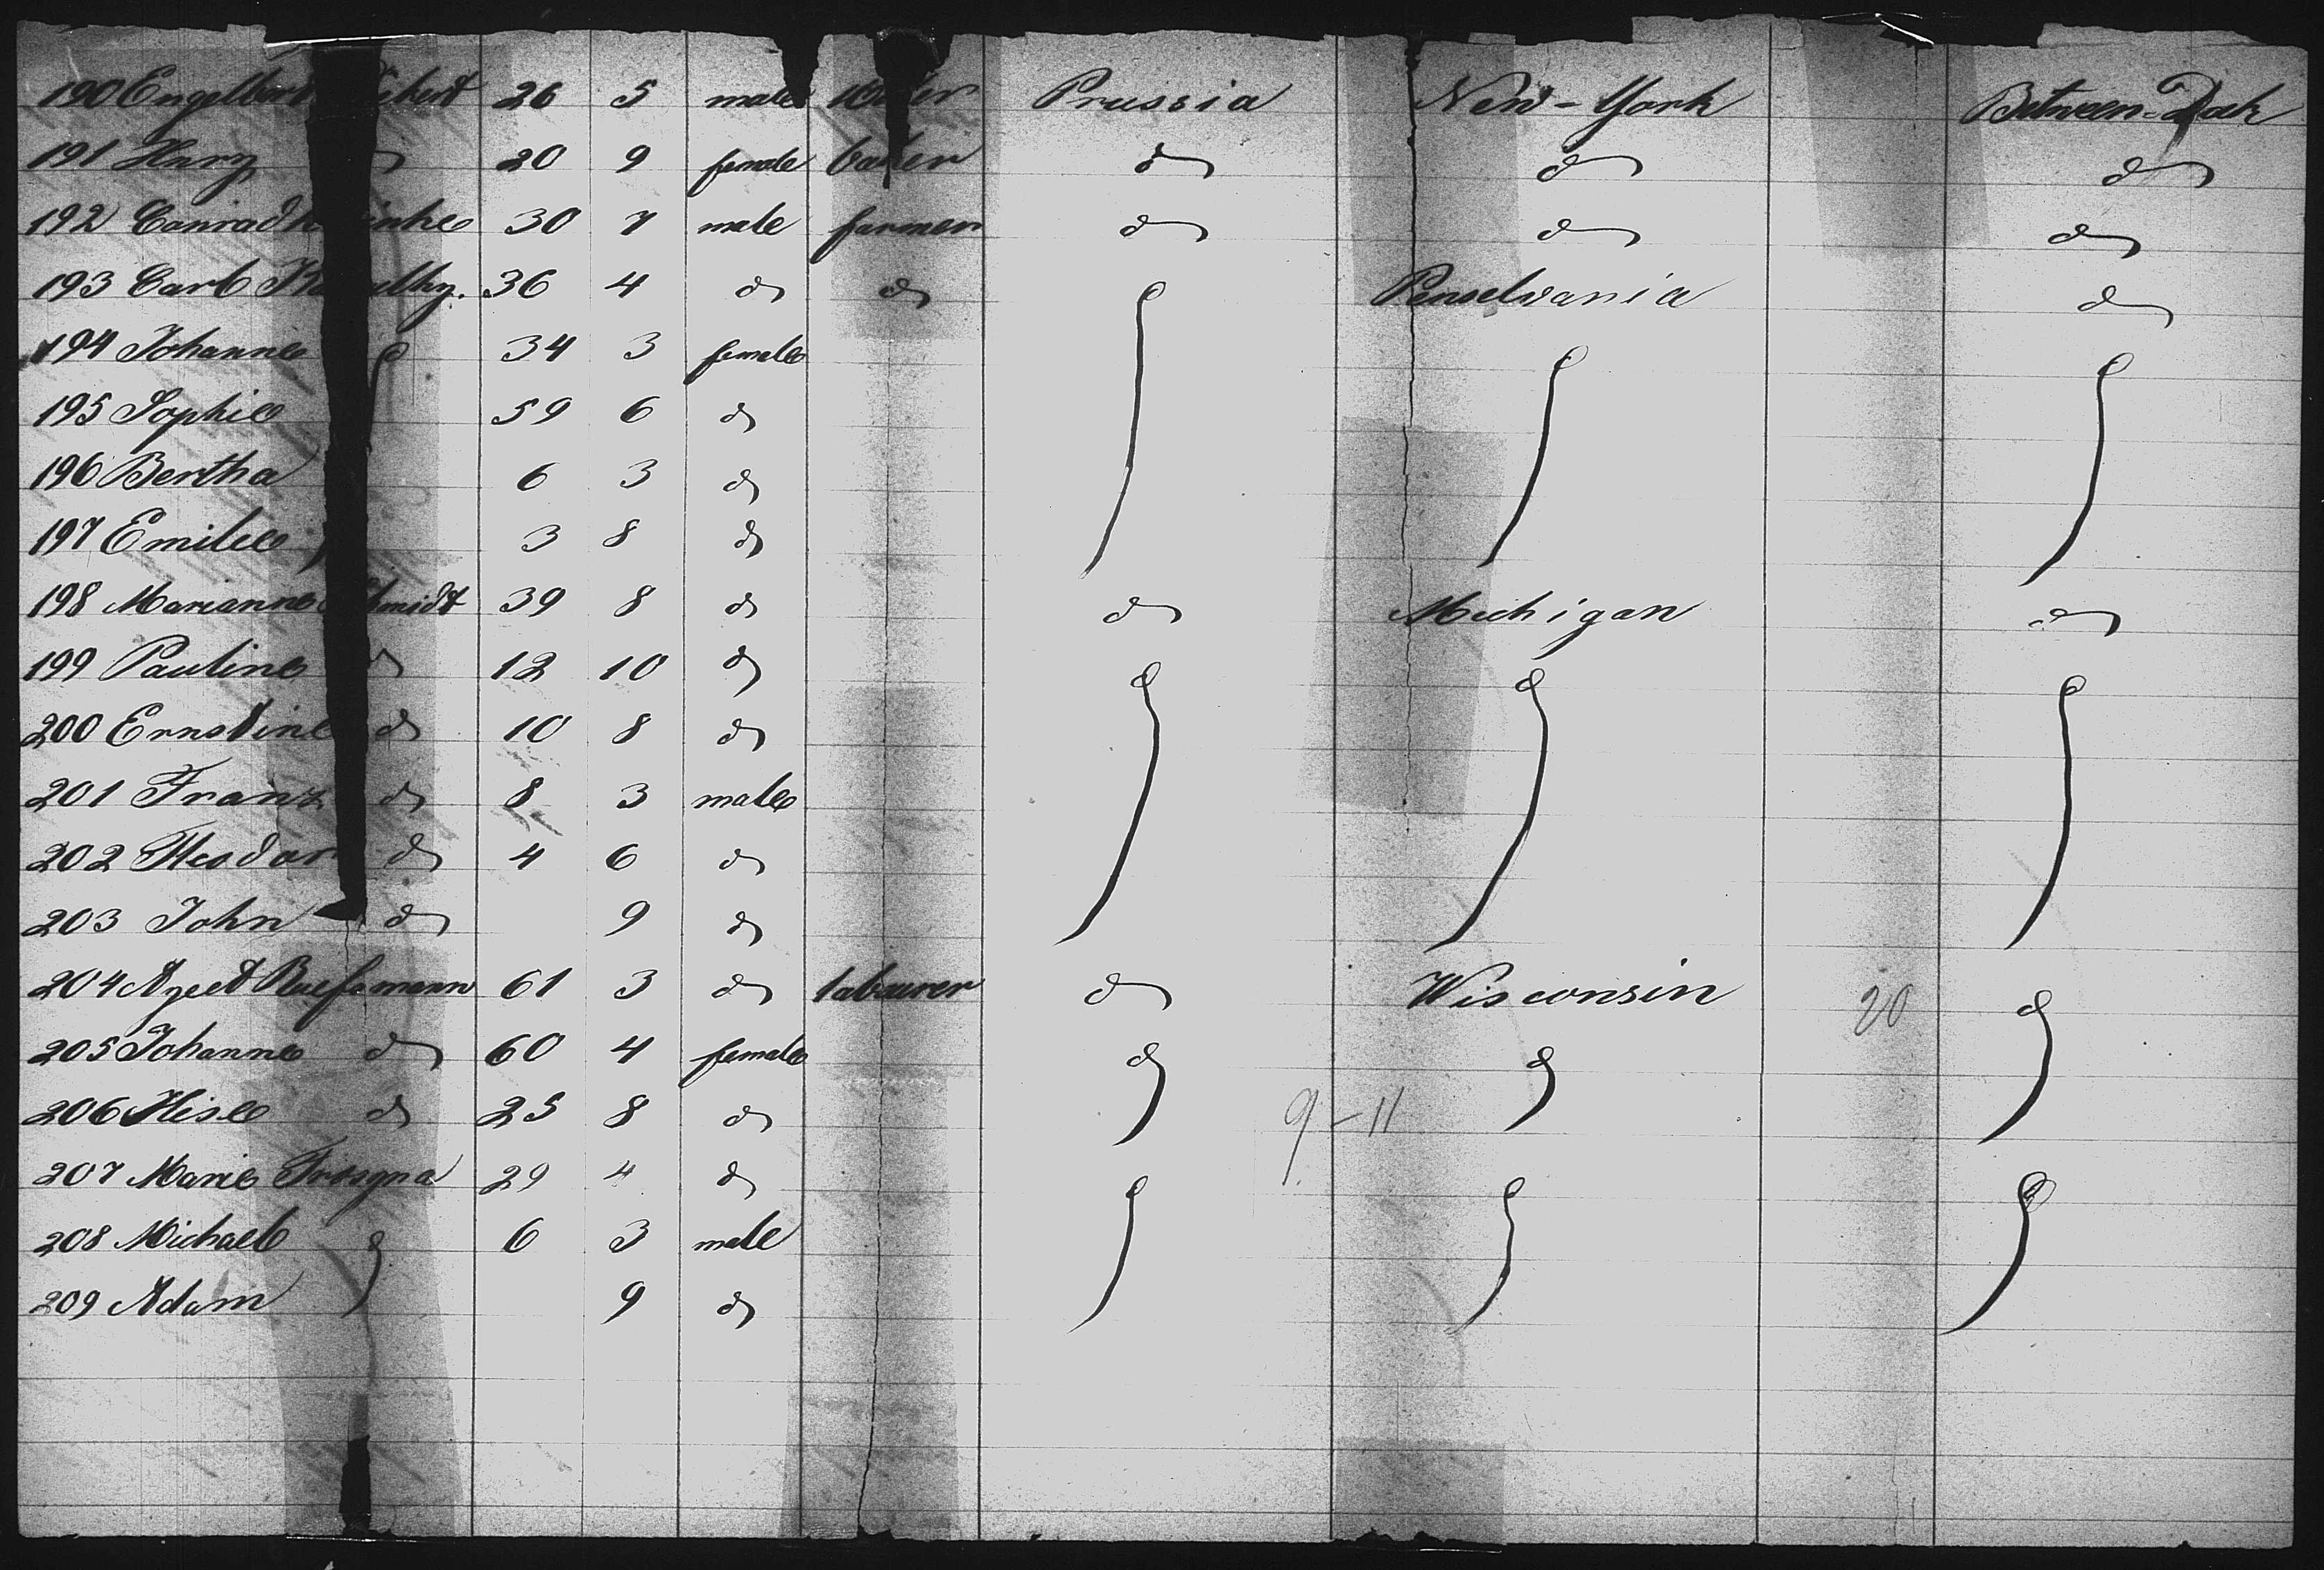 190 Engelbert 26 5 male Prussia New-York Between-Dek
191 Hary do 20 9 female do do do
192 Conrad 30 7 male farmer do do do
193 Carl 36 4 do do do Penselvania do
194 Johanne 34 3 female
195 Sophie 59 6 do
196 Bertha 6 3 do
197 Emilie 3 8 do
198 Marianne Schmidt 39 8 do do Michigan do
199 Pauline do 12 10 do
200 Ernstine do 10 8 do
201 Franz do 8 3 male
202 Theodor do 4 6 do
203 John do 9 do
204 61 3 do labourer do Wisconsin 20 do
205 Johanne do 60 4 female do do
206 do 25 8 do 9-11
207 Marie Trosgna 29 4 do
208 Michael do 6 3 male
209 Adam 9 do